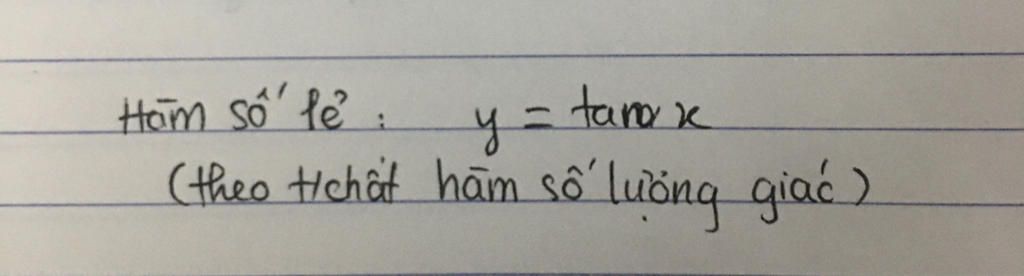 Hàm số lẻ : y = tan x
(theo t/chất hàm số lượng giác)